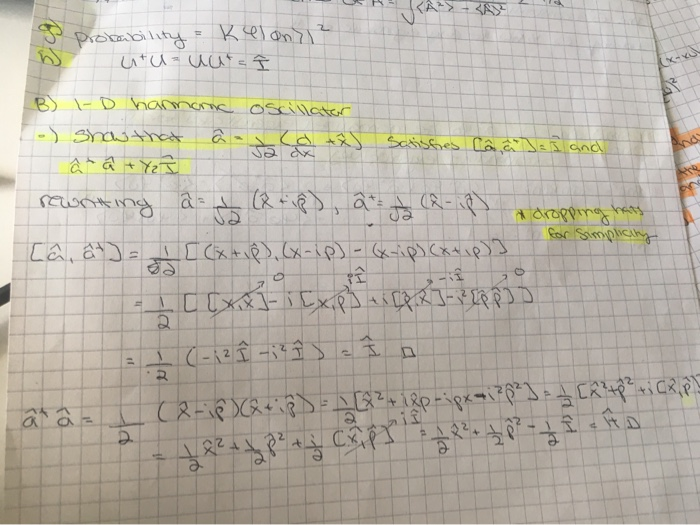 √⟨Â²⟩ - ⟨Â⟩²
g) Probability = |⟨φ|an⟩|²
h) U⁺U = UU⁺ = Î
B) 1-D harmonic oscillator
-) Show that â = 1/√2 (d/dx + x̂) satisfies [â, â⁺] = Î and
â⁺â + ½Î
rewriting â = 1/√2 (x̂ + ip̂), â⁺ = 1/√2 (x̂ - ip̂)
* dropping hats
for simplicity
[â, â⁺] = 1/√2 [(x+ip̂).(x-ip) - (x-ip)(x+ip)]
= 1/2 [[x,x] - i[x,p] + i[p,x] - i²[p,p]]
0 iÎ -iÎ 0
= 1/2 (-i²Î - i²Î) = Î □
â⁺â = 1/2 (x̂-ip̂)(x̂+ip̂) = 1/2[x̂² + ix̂p - ipx - i²p̂²] = 1/2 [x̂² + p̂² + i[x̂,p̂]
= 1/2 x̂² + 1/2 p̂² + i/2 [x̂,p̂] iÎ = 1/2 x̂² + 1/2 p̂² - 1/2 Î = Ĥ □